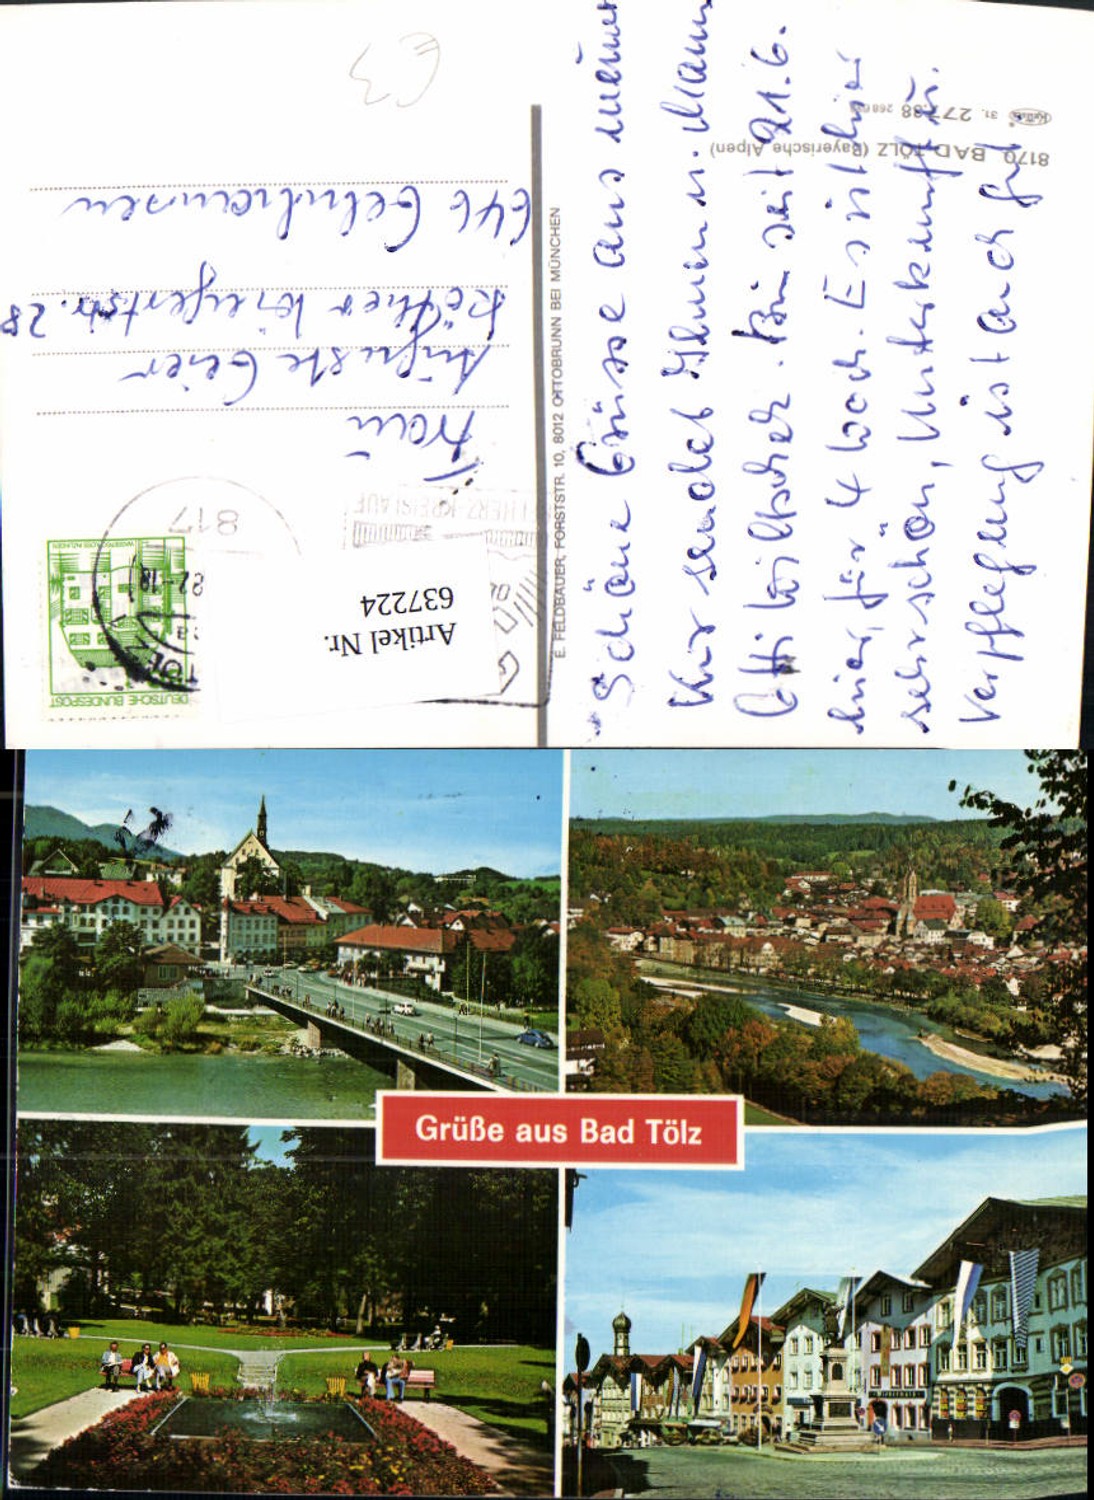 8170 BAD TÖLZ (Bayerische Alpen)
31. 277.88
Schöne Grüsse aus meiner
Kur sendet Ihnen u. Mann
Otti
Bin seit 21.6.
hier, für 4 Woch. Es ist hier
sehr schön, Unterkunft u.
Verpflegung ist auch gut
E. FELDBAUER, FORSTSTR. 10, 8012 OTTOBRUNN BEI MÜNCHEN
DEUTSCHE BUNDESPOST
817
HERZ-KREISLAUF
Artikel Nr.
637224
Frau
Auguste Geier
28
646 Gelnhausen
€3
Grüße aus Bad Tölz